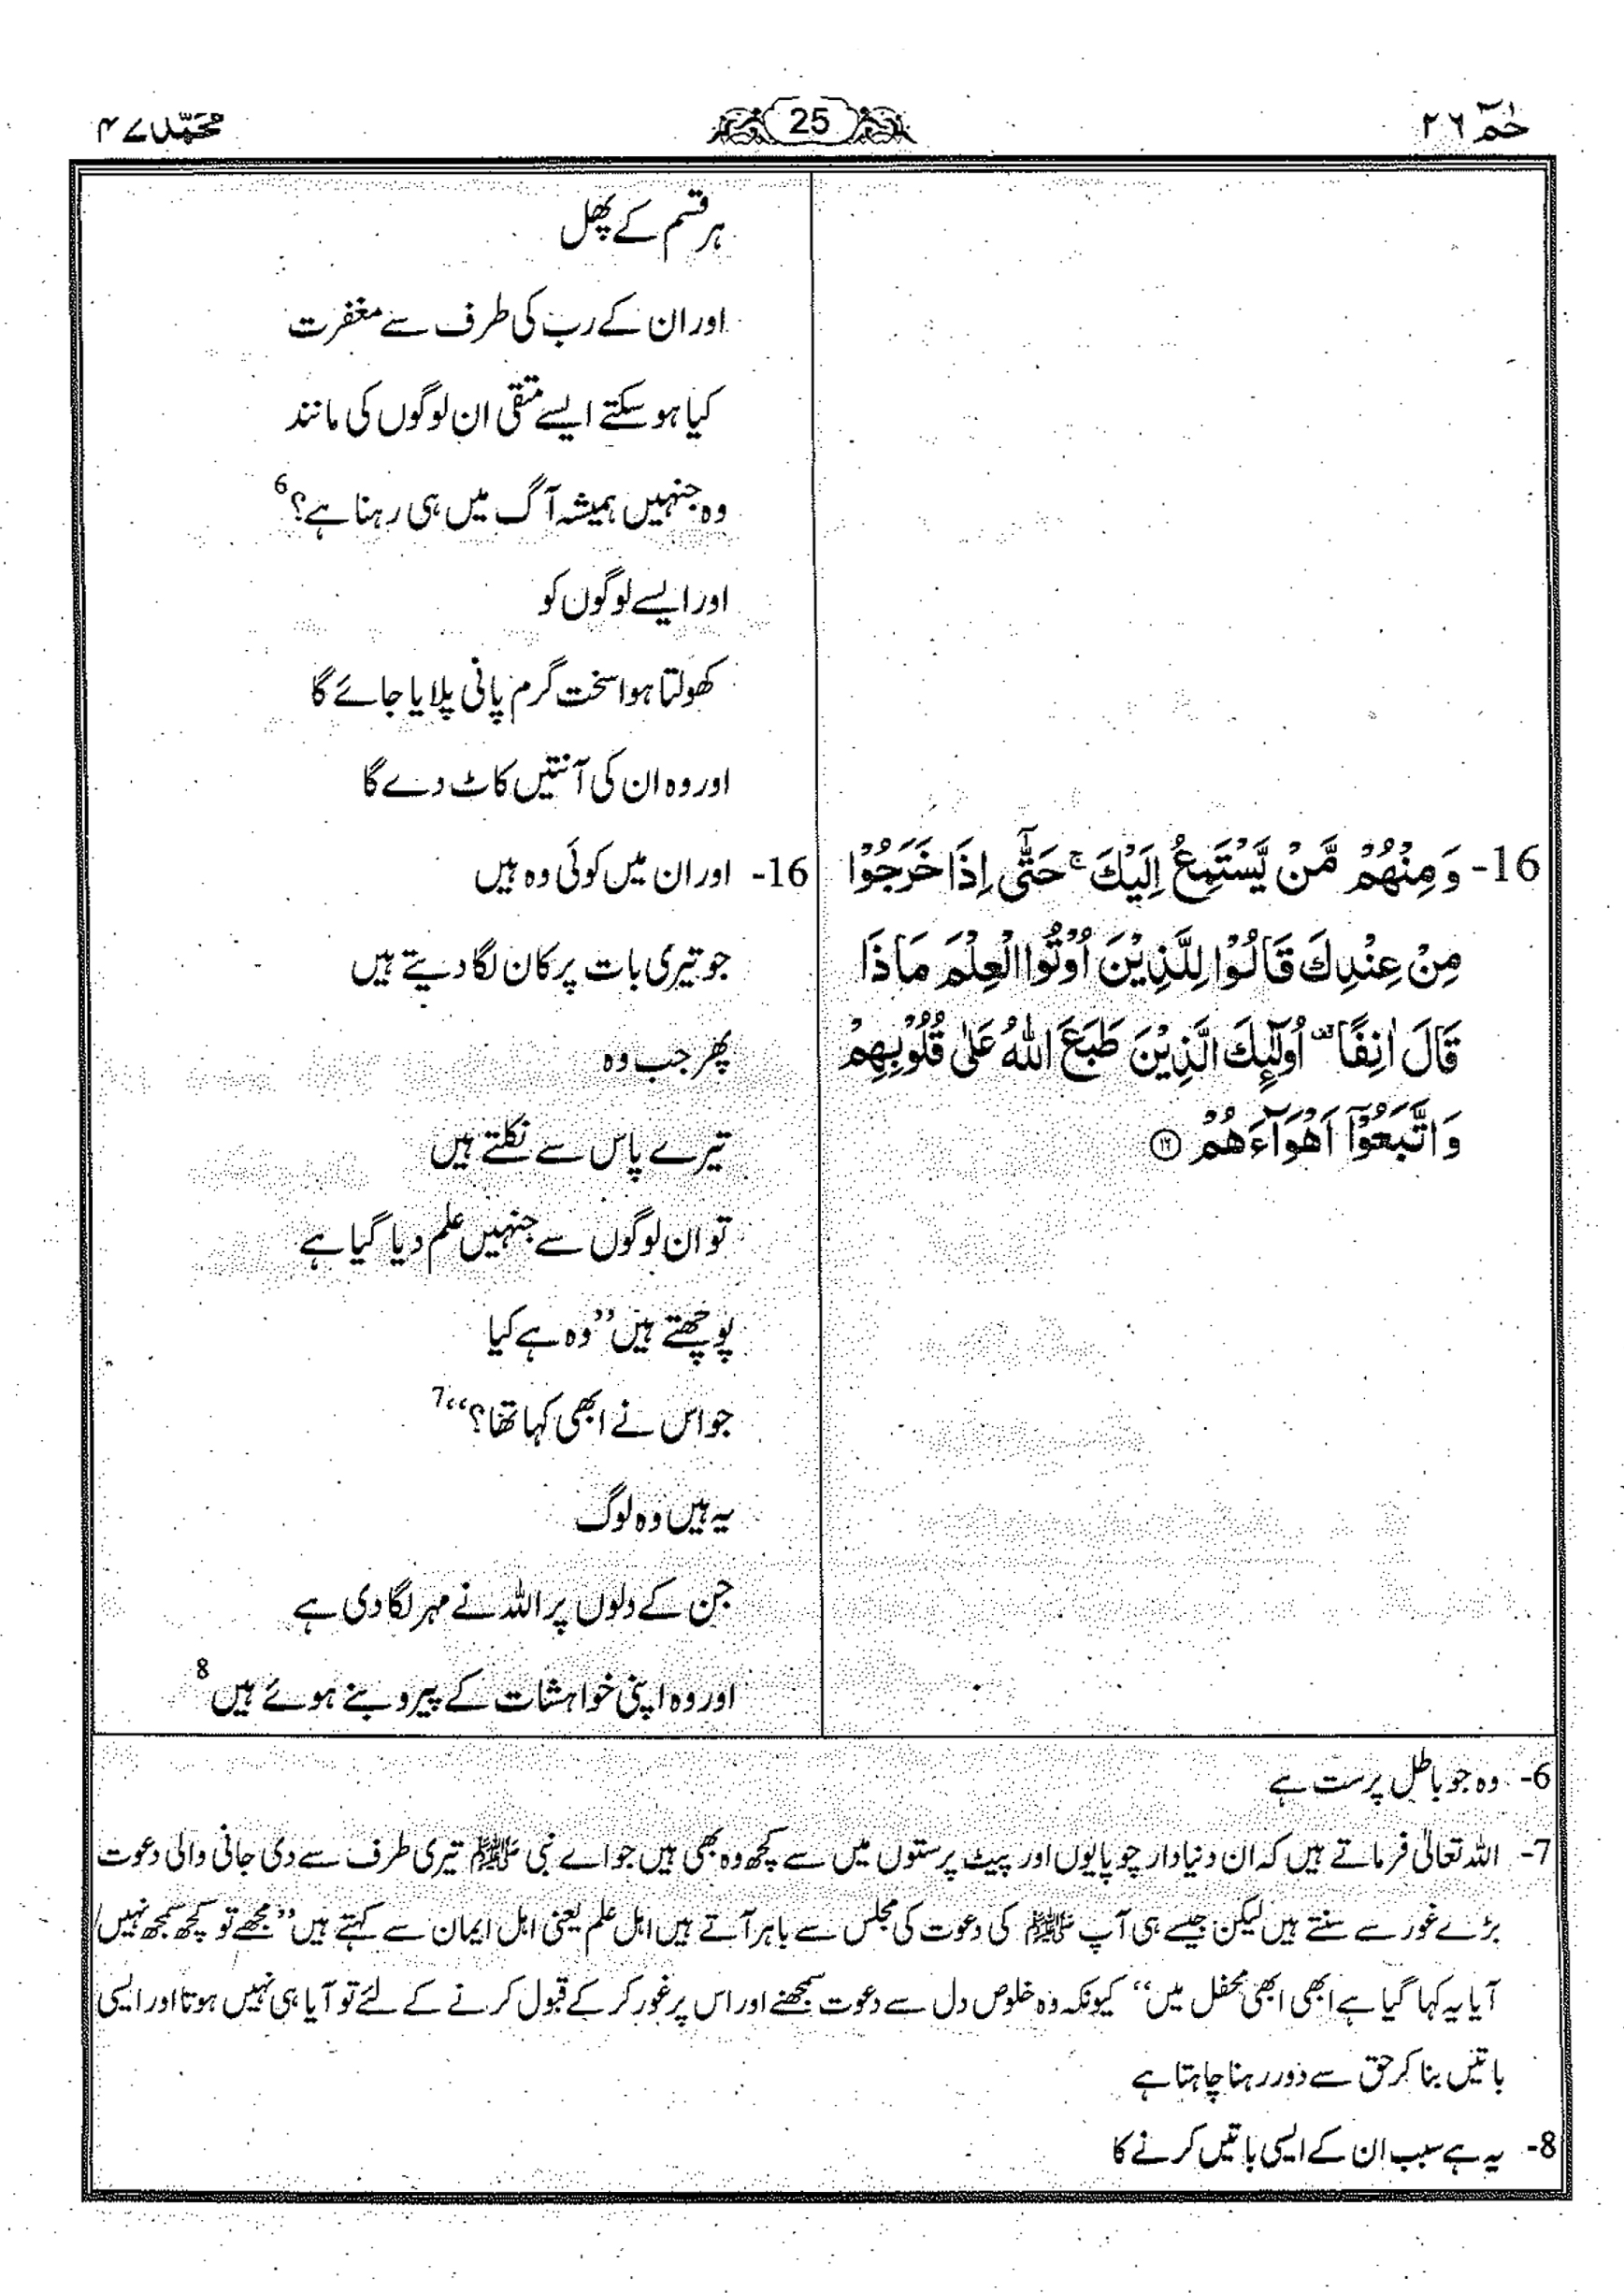 حٰمٓ ٢٦
25
مُحَمَّد ٤٧
ہر قسم کے پھل
اور ان کے رب کی طرف سے مغفرت
کیا ہو سکتے ایسے متقی ان لوگوں کی مانند
وہ جنہیں ہمیشہ آگ میں ہی رہنا ہے؟6
اور ایسے لوگوں کو
کھولتا ہوا سخت گرم پانی پلایا جائے گا
اور وہ ان کی آنتیں کاٹ دے گا
16- وَمِنْهُمْ مَّنْ يَّسْتَمِعُ اِلَيْكَ ۚ حَتّٰٓى اِذَا خَرَجُوْا
مِنْ عِنْدِكَ قَالُوْا لِلَّذِيْنَ اُوْتُوا الْعِلْمَ مَاذَا
قَالَ اٰنِفًا ۫ اُولٰٓئِكَ الَّذِيْنَ طَبَعَ اللّٰهُ عَلٰى قُلُوْبِهِمْ
وَاتَّبَعُوْٓا اَهْوَآءَهُمْ ⑯
16- اور ان میں کوئی وہ ہیں
جو تیری بات پر کان لگا دیتے ہیں
پھر جب وہ
تیرے پاس سے نکلتے ہیں
تو ان لوگوں سے جنہیں علم دیا گیا ہے
پوچھتے ہیں ”وہ ہے کیا
جو اس نے ابھی کہا تھا؟“7
یہ ہیں وہ لوگ
جن کے دلوں پر اللہ نے مہر لگا دی ہے
اور وہ اپنی خواہشات کے پیرو بنے ہوئے ہیں8
6- وہ جو باطل پرست ہے
7- اللہ تعالیٰ فرماتے ہیں کہ ان دنیا دار چوپایوں اور پیٹ پرستوں میں سے کچھ وہ بھی ہیں جو اے نبی ﷺ تیری طرف سے دی جانی والی دعوت
بڑے غور سے سنتے ہیں لیکن جیسے ہی آپ ﷺ کی دعوت کی مجلس سے باہر آتے ہیں اہل علم یعنی اہل ایمان سے کہتے ہیں ”مجھے تو کچھ سمجھ نہیں
آیا یہ کہا گیا ہے ابھی ابھی محفل میں“ کیونکہ وہ خلوص دل سے دعوت سمجھنے اور اس پر غور کر کے قبول کرنے کے لئے تو آیا ہی نہیں ہوتا اور ایسی
باتیں بنا کر حق سے دور رہنا چاہتا ہے
8- یہ ہے سبب ان کے ایسی باتیں کرنے کا